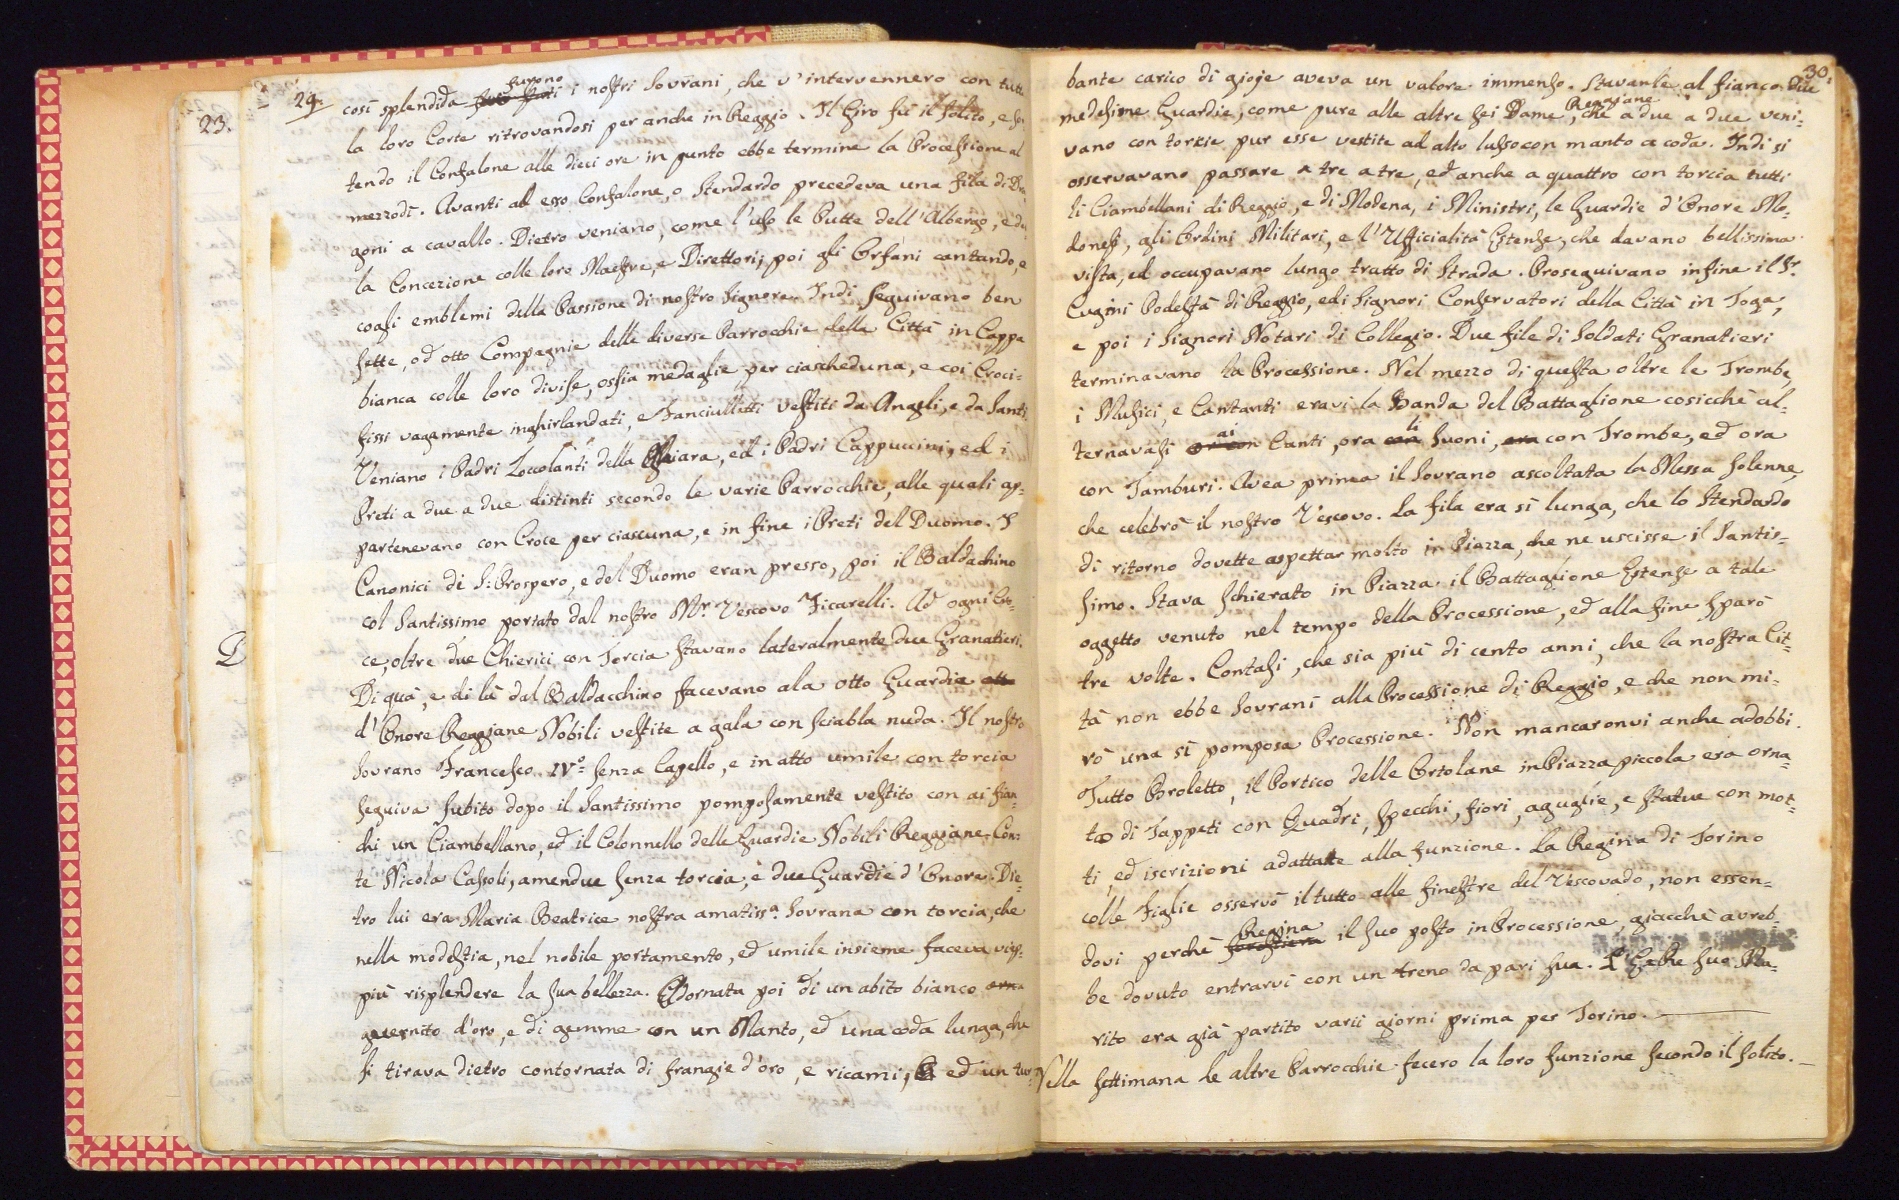 23.
29.
furono
così splendida i nostri Sovrani, che v'intervennero con tutta
la loro Corte ritrovandosi per anche in Reggio. Il Giro fu il solito, e
tendo il Confalone alle dieci ore in punto ebbe termine la Processione al
mezzodì. Avanti ad esso Confalone, o Stendardo precedeva una fila di Dra-
goni a cavallo. Dietro veniano, come l'uso le Putte dell'Albergo, e del-
la Concezione colle loro Maestre, e Direttori, poi gli Orfani cantando, e
cogli emblemi della Passione di nostro Signore. Indi seguivano ben
sette, od otto Compagnie delle diverse Parrocchie della Città in Cappa
bianca colle loro divise, ossia medaglie per ciascheduna, e coi Croci-
fissi vagamente inghirlandati, e Fanciulletti vestiti da Angeli, e da Santi
Veniano i Padri Zoccolanti della Ghiara, ed i Padri Cappuccini, ed i
Preti a due a due distinti secondo le varie Parrocchie, alle quali ap-
partenevano con Croce per ciascuna, e in fine i Preti del Duomo. I
Canonici di S: Prospero, e del Duomo eran presso, poi il Baldachino
col Santissimo portato dal nostro Mr. Vescovo Ficarelli. Ad ogni Cro-
ce, oltre due Chierici con Torcia stavano lateralmente due Granatieri.
Di quà, e di là dal Baldacchino facevano ala otto Guardie
d'Onore Reggiane Nobili vestite a gala con sciabla nuda. Il nostro
Sovrano Francesco IVo. senza Capello, e in atto umile con torcia
seguiva subito dopo il Santissimo pomposamente vestito con ai fian-
chi un Ciambellano, ed il Colonnello delle Guardie Nobili Reggiane Con-
te Nicola Cassoli, amendue senza torcia, e due Guardie d'Onore. Die-
tro lui era Maria Beatrice nostra amatissa. Sovrana con torcia, che
nella modestia, nel nobile portamento, ed umile insieme faceva viep-
più risplendere la sua bellezza. Adornata poi di un abito bianco
guernito d'oro, e di gemme con un Manto, ed una coda lunga, che
si tirava dietro contornata di frangie d'oro, e ricami, ed un tur-
30.
bante carico di gioje aveva un valore immenso. Stavanle al fianco due
medesime Guardie, come pure alle altre sei Dame Reggiane, che a due a due veni-
vano con torzie pur esse vestite ad alto lusso con manto a coda. Indi si
osservavano passare a tre a tre, ed anche a quattro con torcia tutti
li Ciambellani di Reggio, e di Modena, i Ministri, le Guardie d'Onore Mo-
donesi, gli Ordini Militari, e l'Ufficialità Estense, che davano bellissima
vista, ed occupavano lungo tratto di Strada. Proseguivano infine il Sr.
Cugini Podestà di Reggio, ed i Signori Conservatori della Città in Toga,
e poi i Signori Notari di Collegio. Due file di Soldati Granatieri
terminavano la Processione. Nel mezzo di questa oltre le Trombe,
i Musici, e Cantanti eravi la Banda del Battaglione cosicchè al-
ternavasi ai Canti, ora li Suoni, con Trombe, ed ora
con Tamburi. Avea prima il Sovrano ascoltata la Messa solenne,
che celebrò il nostro Vescovo. La fila era sì lunga, che lo Stendardo
di ritorno dovette aspettar molto in Piazza, che ne uscisse il Santis-
simo. Stava schierato in Piazza il Battaglione Estense a tale
oggetto venuto nel tempo della Processione, ed alla fine sparò
tre volte. Contasi, che sia più di cento anni, che la nostra Cit-
tà non ebbe Sovrani alla Processione di Reggio, e che non mi-
rò una sì pomposa Processione. Non mancaronvi anche adobbi.
Tutto Broletto, il Portico delle Ortolane in Piazza piccola era orna-
to di Tappeti con Quadri, specchi, fiori, aguglie, e statue con mot-
ti, ed iscrizioni adattate alla funzione. La Regina di Torino
colle Figlie osservò il tutto alle finestre del Vescovado, non essen-
dovi perchè Regina il suo posto in Processione, giacchè avreb-
be dovuto entrarvi con un treno da pari sua. suo Ma-
rito era già partito varii giorni prima per Torino.
Nella settimana le altre Parrocchie fecero la loro funzione secondo il solito.